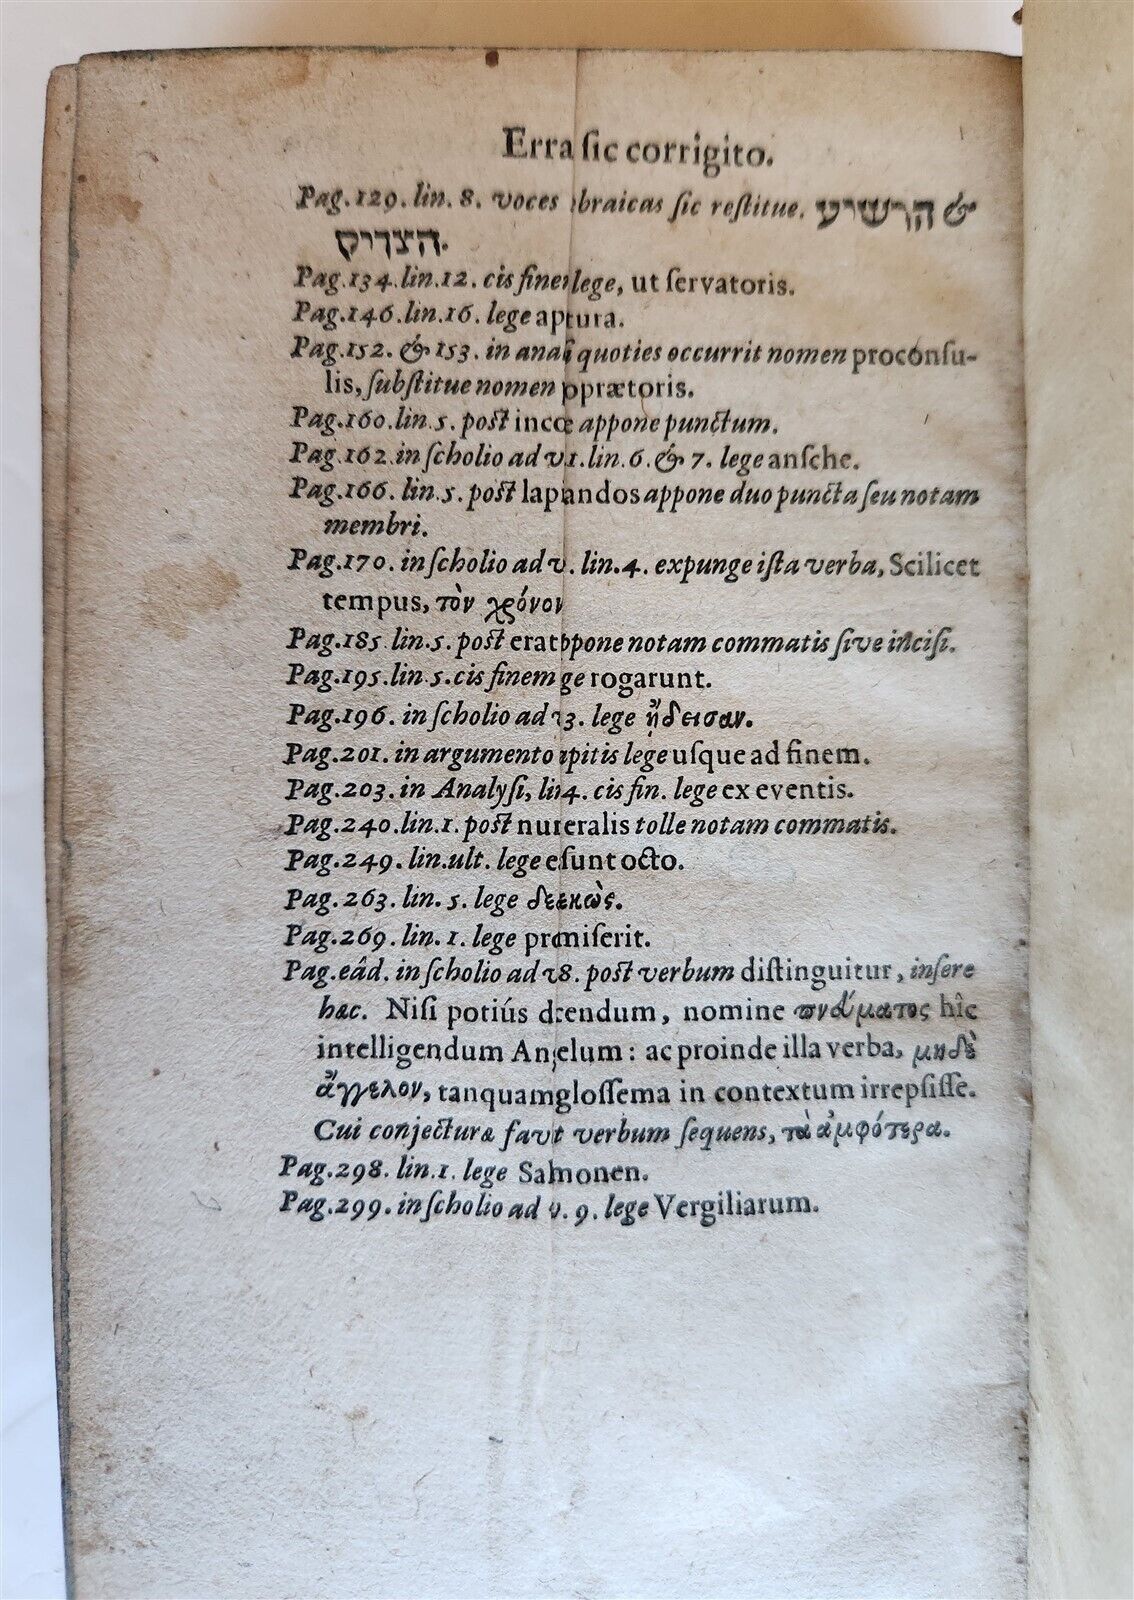 Erra sic corrigito.
Pag. 129. lin. 8. voces braicas sic restitue. הרשיע &
הצדיק.
Pag. 134. lin. 12. cis finem lege, ut servatoris.
Pag. 146. lin. 16. lege aptura.
Pag. 152. & 153. in anal quoties occurrit nomen proconsu-
lis, substitue nomen oprætoris.
Pag. 160. lin. 5. post incœ appone punctum.
Pag. 162. in scholio ad v 1. lin. 6. & 7. lege ansche.
Pag. 166. lin. 5. post lapandos appone duo puncta seu notam
membri.
Pag. 170. in scholio ad v. lin. 4. expunge ista verba, Scilicet
tempus, τὸν χρόνον
Pag. 185 lin. 5. post erat ppone notam commatis sive incisi.
Pag. 195. lin 5. cis finem ge rogarunt.
Pag. 196. in scholio ad 3. lege ᾔδεισαν.
Pag. 201. in argumento pitis lege usque ad finem.
Pag. 203. in Analysi, lin 4. cis fin. lege ex eventis.
Pag. 240. lin. 1. post nuteralis tolle notam commatis.
Pag. 249. lin. ult. lege esunt octo.
Pag. 263. lin. 5. lege δεεκὼς.
Pag. 269. lin. 1. lege promiserit.
Pag. eâd. in scholio ad 8. post verbum distinguitur, insere
hæc. Nisi potiús dcendum, nomine πνεύματος hîc
intelligendum Angelum: ac proinde illa verba, μηδὲ
ἄγγελον, tanquam glossema in contextum irrepsisse.
Cui conjecturæ favt verbum sequens, τὰ ἀμφότερα.
Pag. 298. lin. 1. lege Salmonen.
Pag. 299. in scholio ad v. 9. lege Vergiliarum.